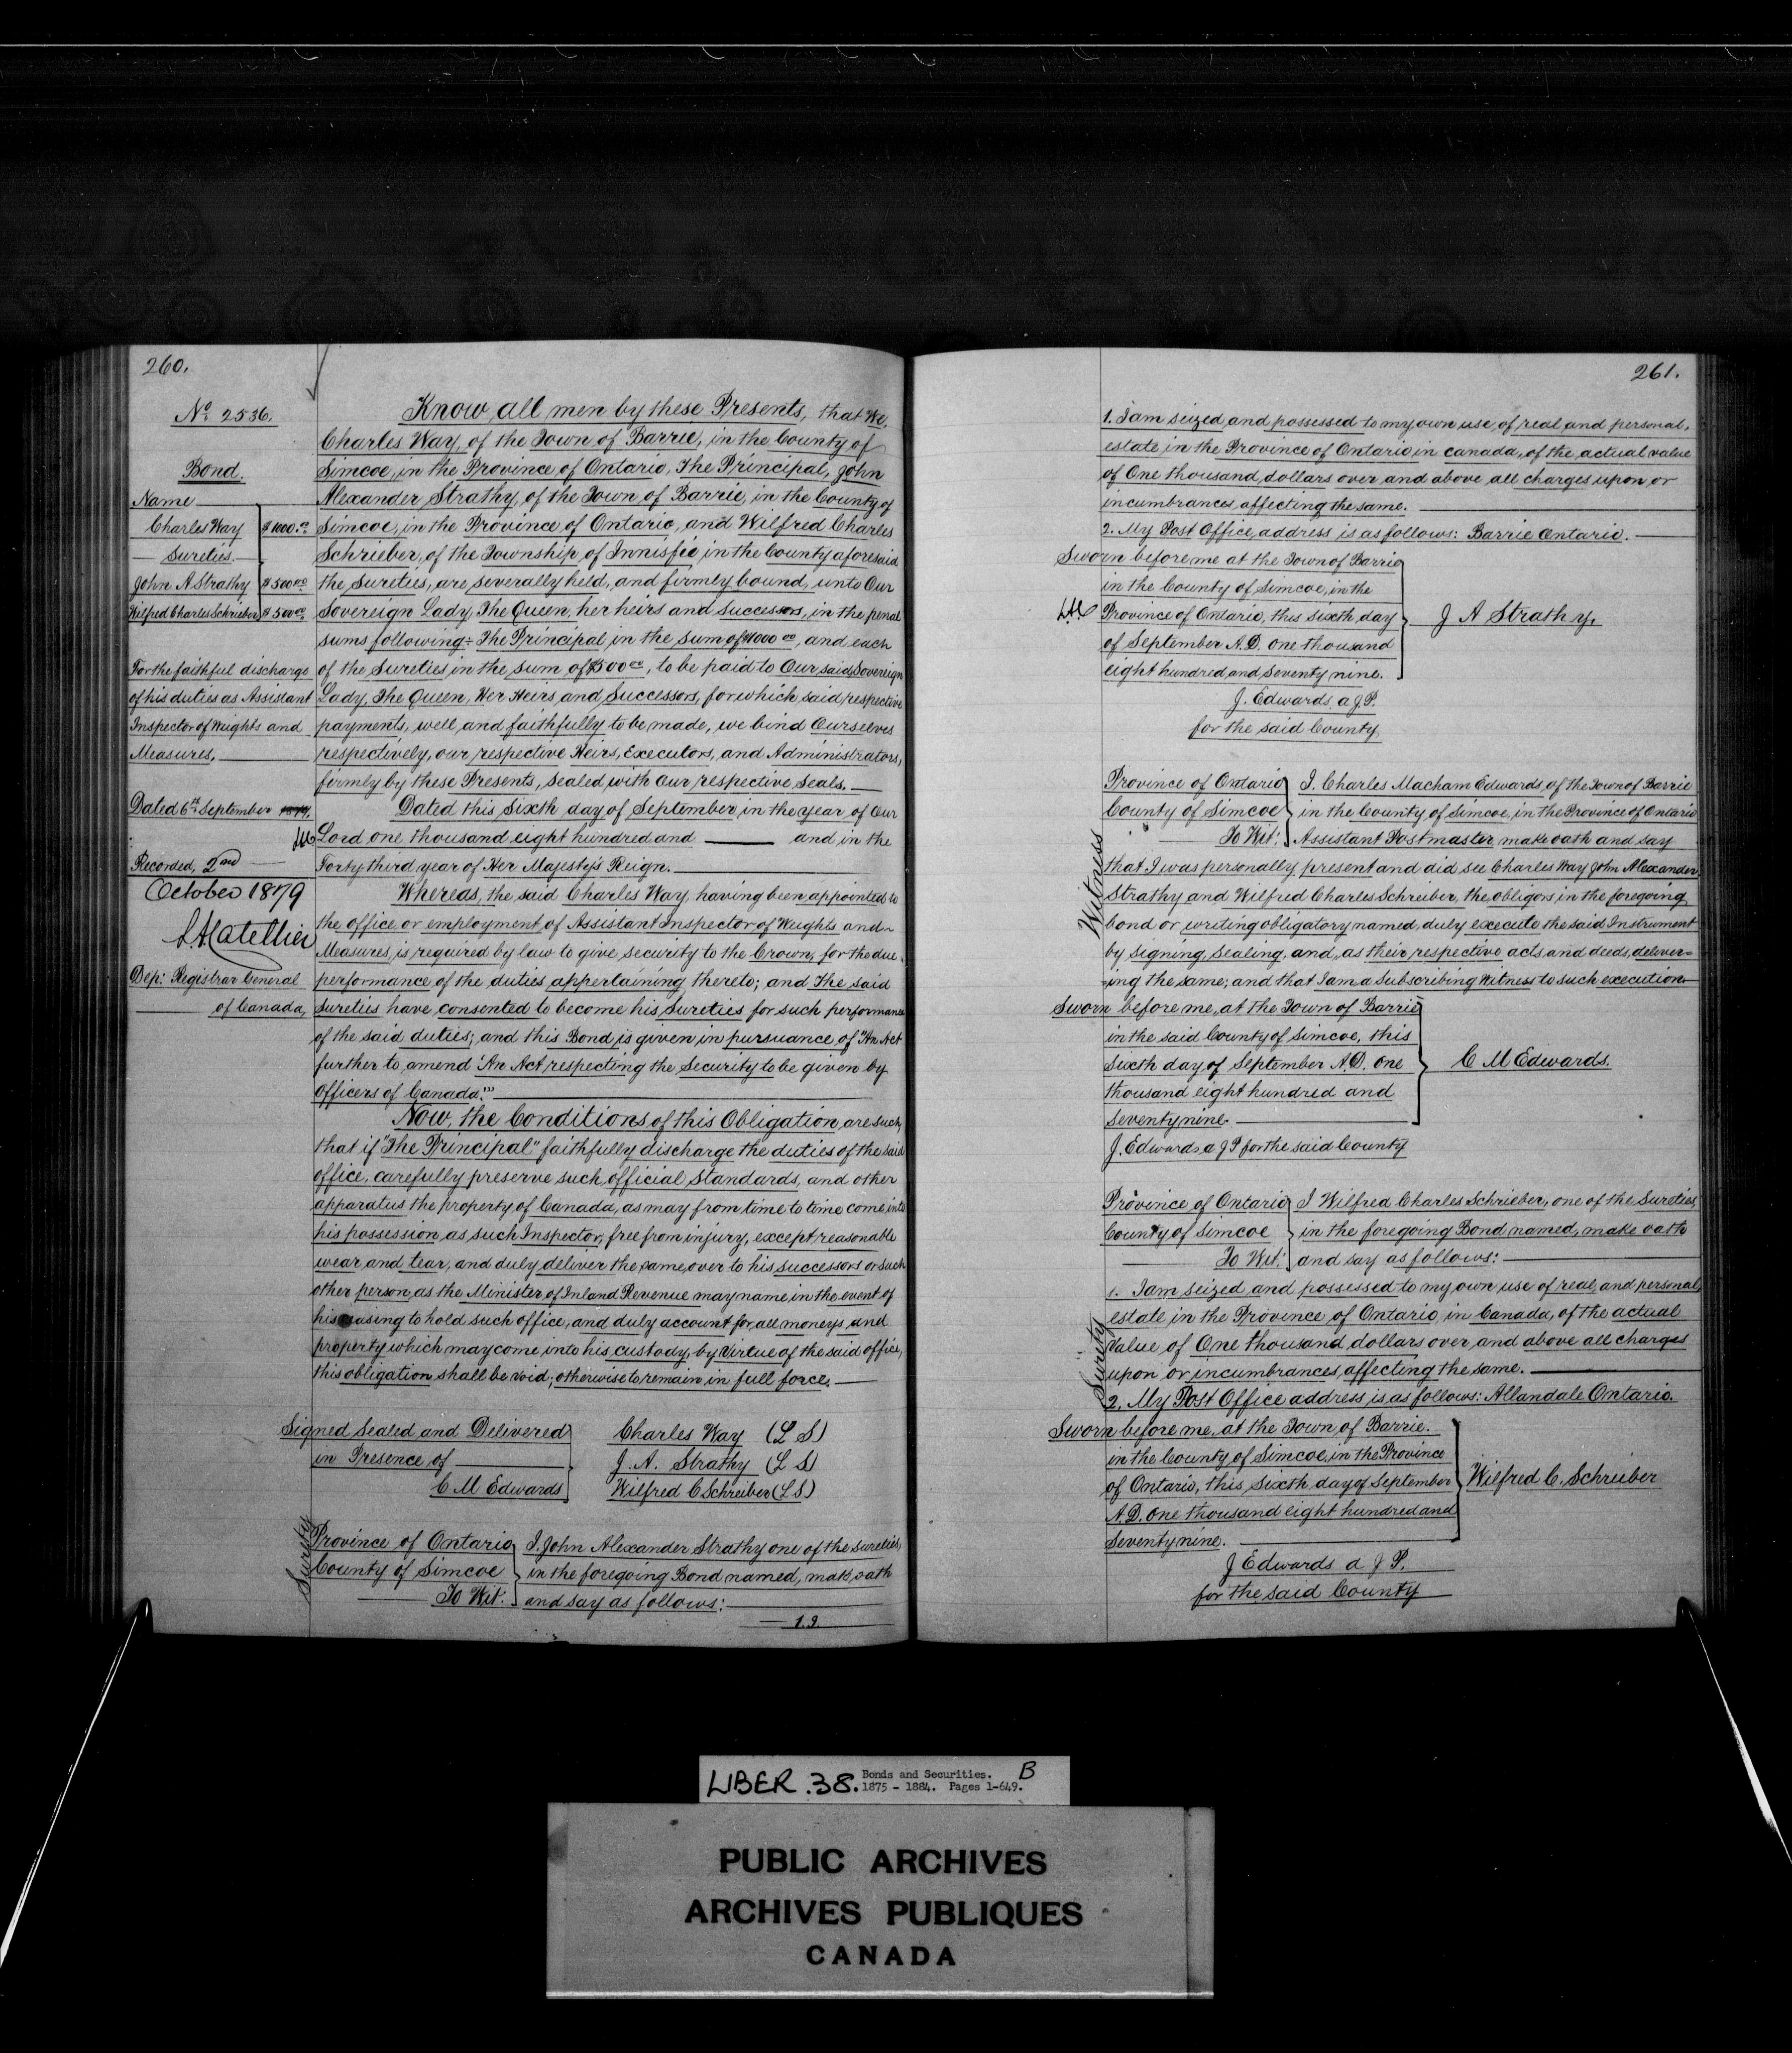 260.
No 2536.
Bond.
Name
Charles Way $1000.00
Sureties.
John A Strathy $500.00
Wilfred Charles Schrieber $500.00
For the faithful discharge
of his duties as Assistant
Inspector of Weights and
Measures.
Dated 6th September 1879.
Recorded, 2nd
October 1879
Dep: Registrar General
of Canada,
Know all men by these Presents, that We,
Charles Way, of the Town of Barrie, in the County of
Simcoe, in the Province of Ontario, The Principal, John
Alexander Strathy, of the Town of Barrie, in the County of
Simcoe, in the Province of Ontario, and Wilfred Charles
Schrieber, of the Township of Innisfil in the County aforesaid
the Sureties, are severally held, and firmly bound, unto Our
Sovereign Lady, The Queen, her heirs and Successors, in the penal
sums following:- The Principal in the sum of $1000 00, and each
of the Sureties in the sum of $500 00, to be paid to Our said Sovereign
Lady, The Queen, Her Heirs and Successors, for which said respective
payments, well and faithfully to be made, we bind Ourselves
respectively, our respective Heirs, Executors, and Administrators,
firmly by these Presents, Sealed with Our respective Seals.
Dated this Sixth day of September in the year of Our
Lord one thousand eight hundred and and in the
Forty third year of Her Majesty's Reign.
Whereas, the said Charles Way, having been appointed to
the office or employment of Assistant Inspector of Weights and
Measures, is required by law to give security to the Crown, for the due
performance of the duties appertaining thereto; and The said
Sureties have consented to become his Sureties for such performance
of the said duties; and this Bond is given in pursuance of "An Act
further to amend 'An Act respecting the Security to be given by
Officers of Canada.'"
Now, the Conditions of this Obligation, are such,
that if "The Principal" faithfully discharge the duties of the said
office, carefully preserve such official Standards, and other
apparatus the property of Canada, as may from time to time come into
his possession as such Inspector, free from injury, except reasonable
wear and tear, and duly deliver the same over to his successors or such
other person, as the Minister of Inland Revenue may name, in the event of
his ceasing to hold such office, and duly account for, all moneys and
property which may come into his custody, by Virtue of the said office,
this obligation shall be void; otherwise to remain in full force.
Signed Sealed and Delivered
in Presence of
C M Edwards
Charles Way (L S)
J. A. Strathy (L S)
Wilfred C Schreiber (L S)
Surety
Province of Ontario
County of Simcoe
To Wit:
I. John Alexander Strathy one of the sureties,
in the foregoing Bond named, make oath
and say as follows:
1. I.
261.
1. I am seized and possessed to my own use of real and personal,
estate in the Province of Ontario in Canada, of the actual value
of One thousand dollars over and above all charges upon or
incumbrances affecting the same.
2. My Post Office address is as follows: Barrie Ontario.
Sworn before me at the Town of Barrie
in the County of Simcoe, in the
Province of Ontario, this sixth day
of September A.D. one thousand
eight hundred and seventy nine.
J A Strathy.
J. Edwards a J.P.
for the said County
Witness
Province of Ontario
County of Simcoe
To Wit:
I. Charles Macham Edwards, of the Town of Barrie
in the County of Simcoe, in the Province of Ontario
Assistant Postmaster, make oath and say
that I was personally present and did see Charles Way John Alexander
Strathy and Wilfred Charles Schreiber, the obligors in the foregoing
bond or writing obligatory named, duly execute the said Instrument
by signing, sealing, and, as their respective acts and deeds, deliver=
ing the same; and that I am a Subscribing Witness to such execution
Sworn before me, at the Town of Barrie
in the said County of Simcoe, this
Sixth day of September A.D. One
thousand eight hundred and
Seventy nine.
C M Edwards.
J. Edwards a J P for the said County
Province of Ontario
County of Simcoe
To Wit:
I Wilfred Charles Schrieber, one of the Sureties,
in the foregoing Bond named, make oath
and say as follows:
Surety
1. I am seized and possessed to my own use of real, and personal,
estate in the Province of Ontario, in Canada, of the actual
value of One thousand dollars over and above all charges
upon or incumbrances, affecting the same.
2. My Post Office address is as follows: Allandale Ontario.
Sworn before me, at the Town of Barrie.
in the County of Simcoe, in the Province
of Ontario, this sixth day of September
A.D. one thousand eight hundred and
Seventy nine.
Wilfred C. Schreiber
J Edwards a J P.
for the said County
LIBER .38. Bonds and Securities. B
1875 - 1884. Pages 1-649.
PUBLIC ARCHIVES
ARCHIVES PUBLIQUES
CANADA